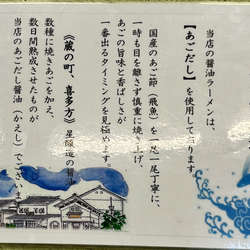 当店の醤油ラーメンは、
【あごだし】を使用しております。
国産のあご節（飛魚）を一尾一尾丁寧に、
一時も目を離さず慎重に焼き上げ、
あごの旨味と香ばしさが
一番出るタイミングを見極めます。
《蔵の町、喜多方》星醸造の醤油
数種に焼きあごを加え、
数日間熟成させたものが
当店のあごだし醤油（かえし）でございます